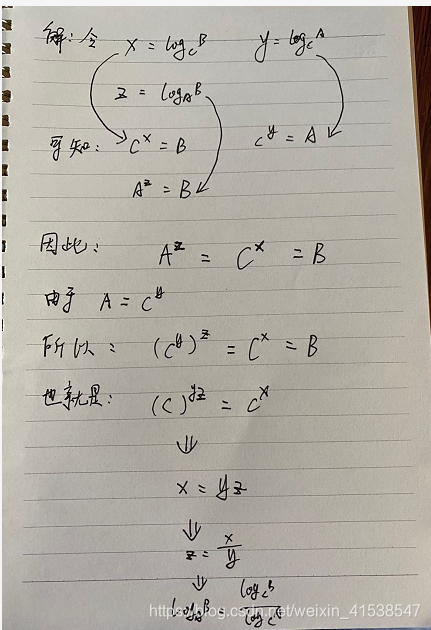 解：令 x = log_C^B y = log_C^A
z = log_A^B
可知： C^x = B C^y = A
A^z = B
因此： A^z = C^x = B
由于 A = C^y
所以： (C^y)^z = C^x = B
也就是： (C)^yz = C^x
⇓
x = yz
⇓
z = x/y
⇓
log_A^B = log_C^B / log_C^A
https://blog.csdn.net/weixin_41538547